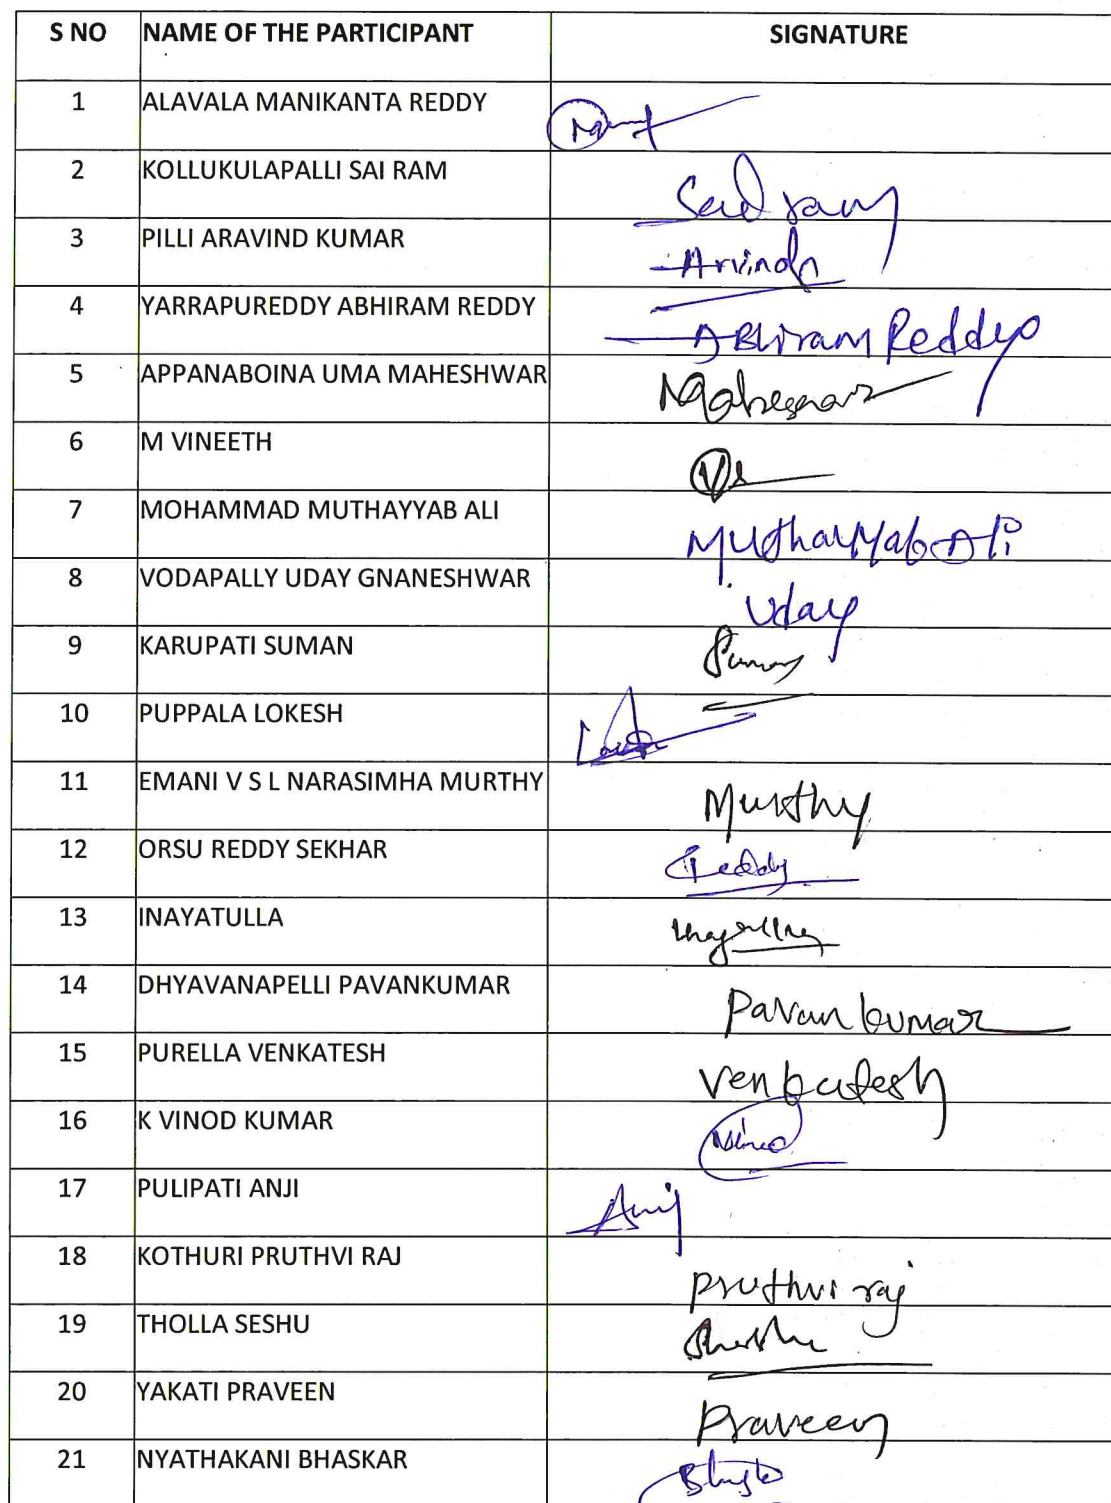 S NO NAME OF THE PARTICIPANT SIGNATURE
1 ALAVALA MANIKANTA REDDY
2 KOLLUKULAPALLI SAI RAM Sai ram
3 PILLI ARAVIND KUMAR Arvind
4 YARRAPUREDDY ABHIRAM REDDY ABhiram Reddy
5 APPANABOINA UMA MAHESHWAR
6 M VINEETH
7 MOHAMMAD MUTHAYYAB ALI MuthayyabAli
8 VODAPALLY UDAY GNANESHWAR Uday
9 KARUPATI SUMAN Suman
10 PUPPALA LOKESH
11 EMANI V S L NARASIMHA MURTHY Murthy
12 ORSU REDDY SEKHAR Reddy
13 INAYATULLA
14 DHYAVANAPELLI PAVANKUMAR Pavan kumar
15 PURELLA VENKATESH Venkatesh
16 K VINOD KUMAR
17 PULIPATI ANJI Anji
18 KOTHURI PRUTHVI RAJ Pruthvi raj
19 THOLLA SESHU
20 YAKATI PRAVEEN Praveen
21 NYATHAKANI BHASKAR